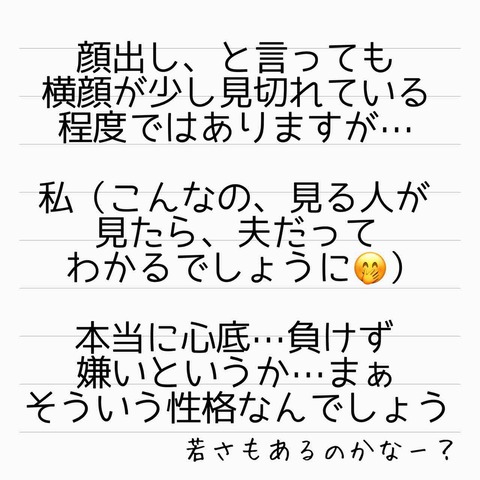 顔出し、と言っても
横顔が少し見切れている
程度ではありますが…
私（こんなの、見る人が
見たら、夫だって
わかるでしょうに🤭）
本当に心底…負けず
嫌いというか…まぁ
そういう性格なんでしょう
若さもあるのかなー？